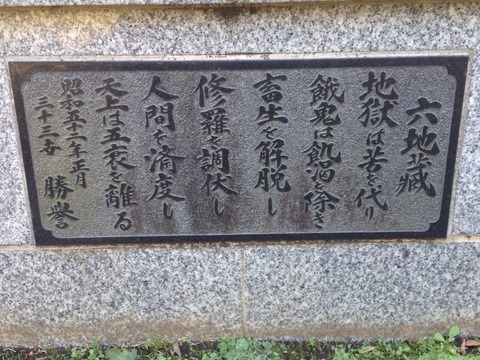 六地蔵
地獄は苦を代り
餓鬼は飢渇を除き
畜生を解脱し
修羅を調伏し
人間を済度し
天上は五衰を離る
昭和五十二年正月
三十三世 勝誉